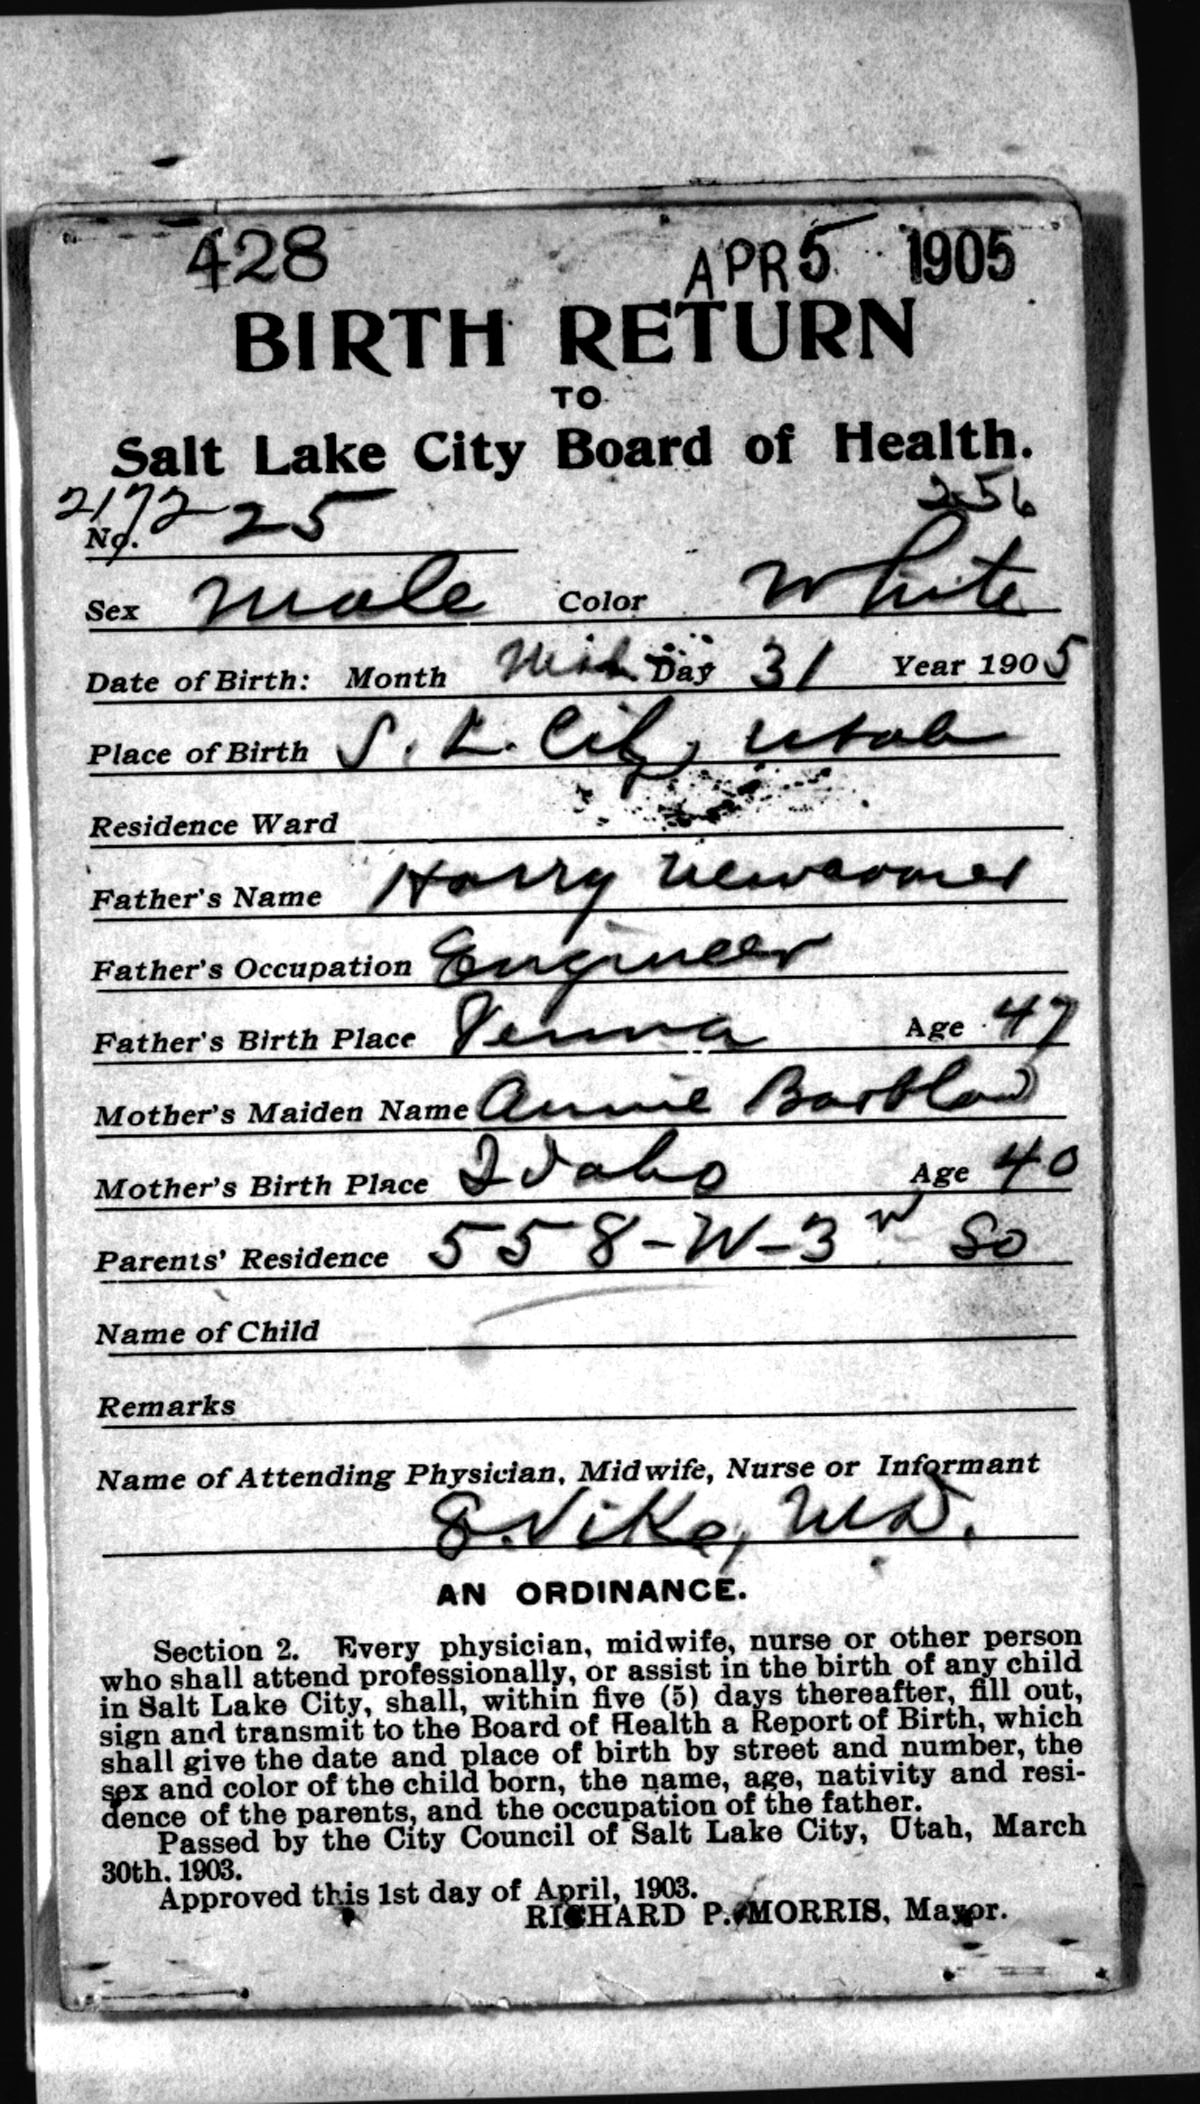 428 APR 5 1905
BIRTH RETURN
TO
Salt Lake City Board of Health.
2172 256
No. 25
Sex Male Color White
Date of Birth: Month Mch Day 31 Year 1905
Place of Birth S. L. City, Utah
Residence Ward
Father's Name Harry Newcomer
Father's Occupation Engineer
Father's Birth Place Penna Age 47
Mother's Maiden Name Annie
Mother's Birth Place Idaho Age 40
Parents' Residence 558-W-3rd So
Name of Child
Remarks
Name of Attending Physician, Midwife, Nurse or Informant
M.D.
AN ORDINANCE.
Section 2. Every physician, midwife, nurse or other person
who shall attend professionally, or assist in the birth of any child
in Salt Lake City, shall, within five (5) days thereafter, fill out,
sign and transmit to the Board of Health a Report of Birth, which
shall give the date and place of birth by street and number, the
sex and color of the child born, the name, age, nativity and resi-
dence of the parents, and the occupation of the father.
Passed by the City Council of Salt Lake City, Utah, March
30th, 1903.
Approved this 1st day of April, 1903.
RICHARD P. MORRIS, Mayor.